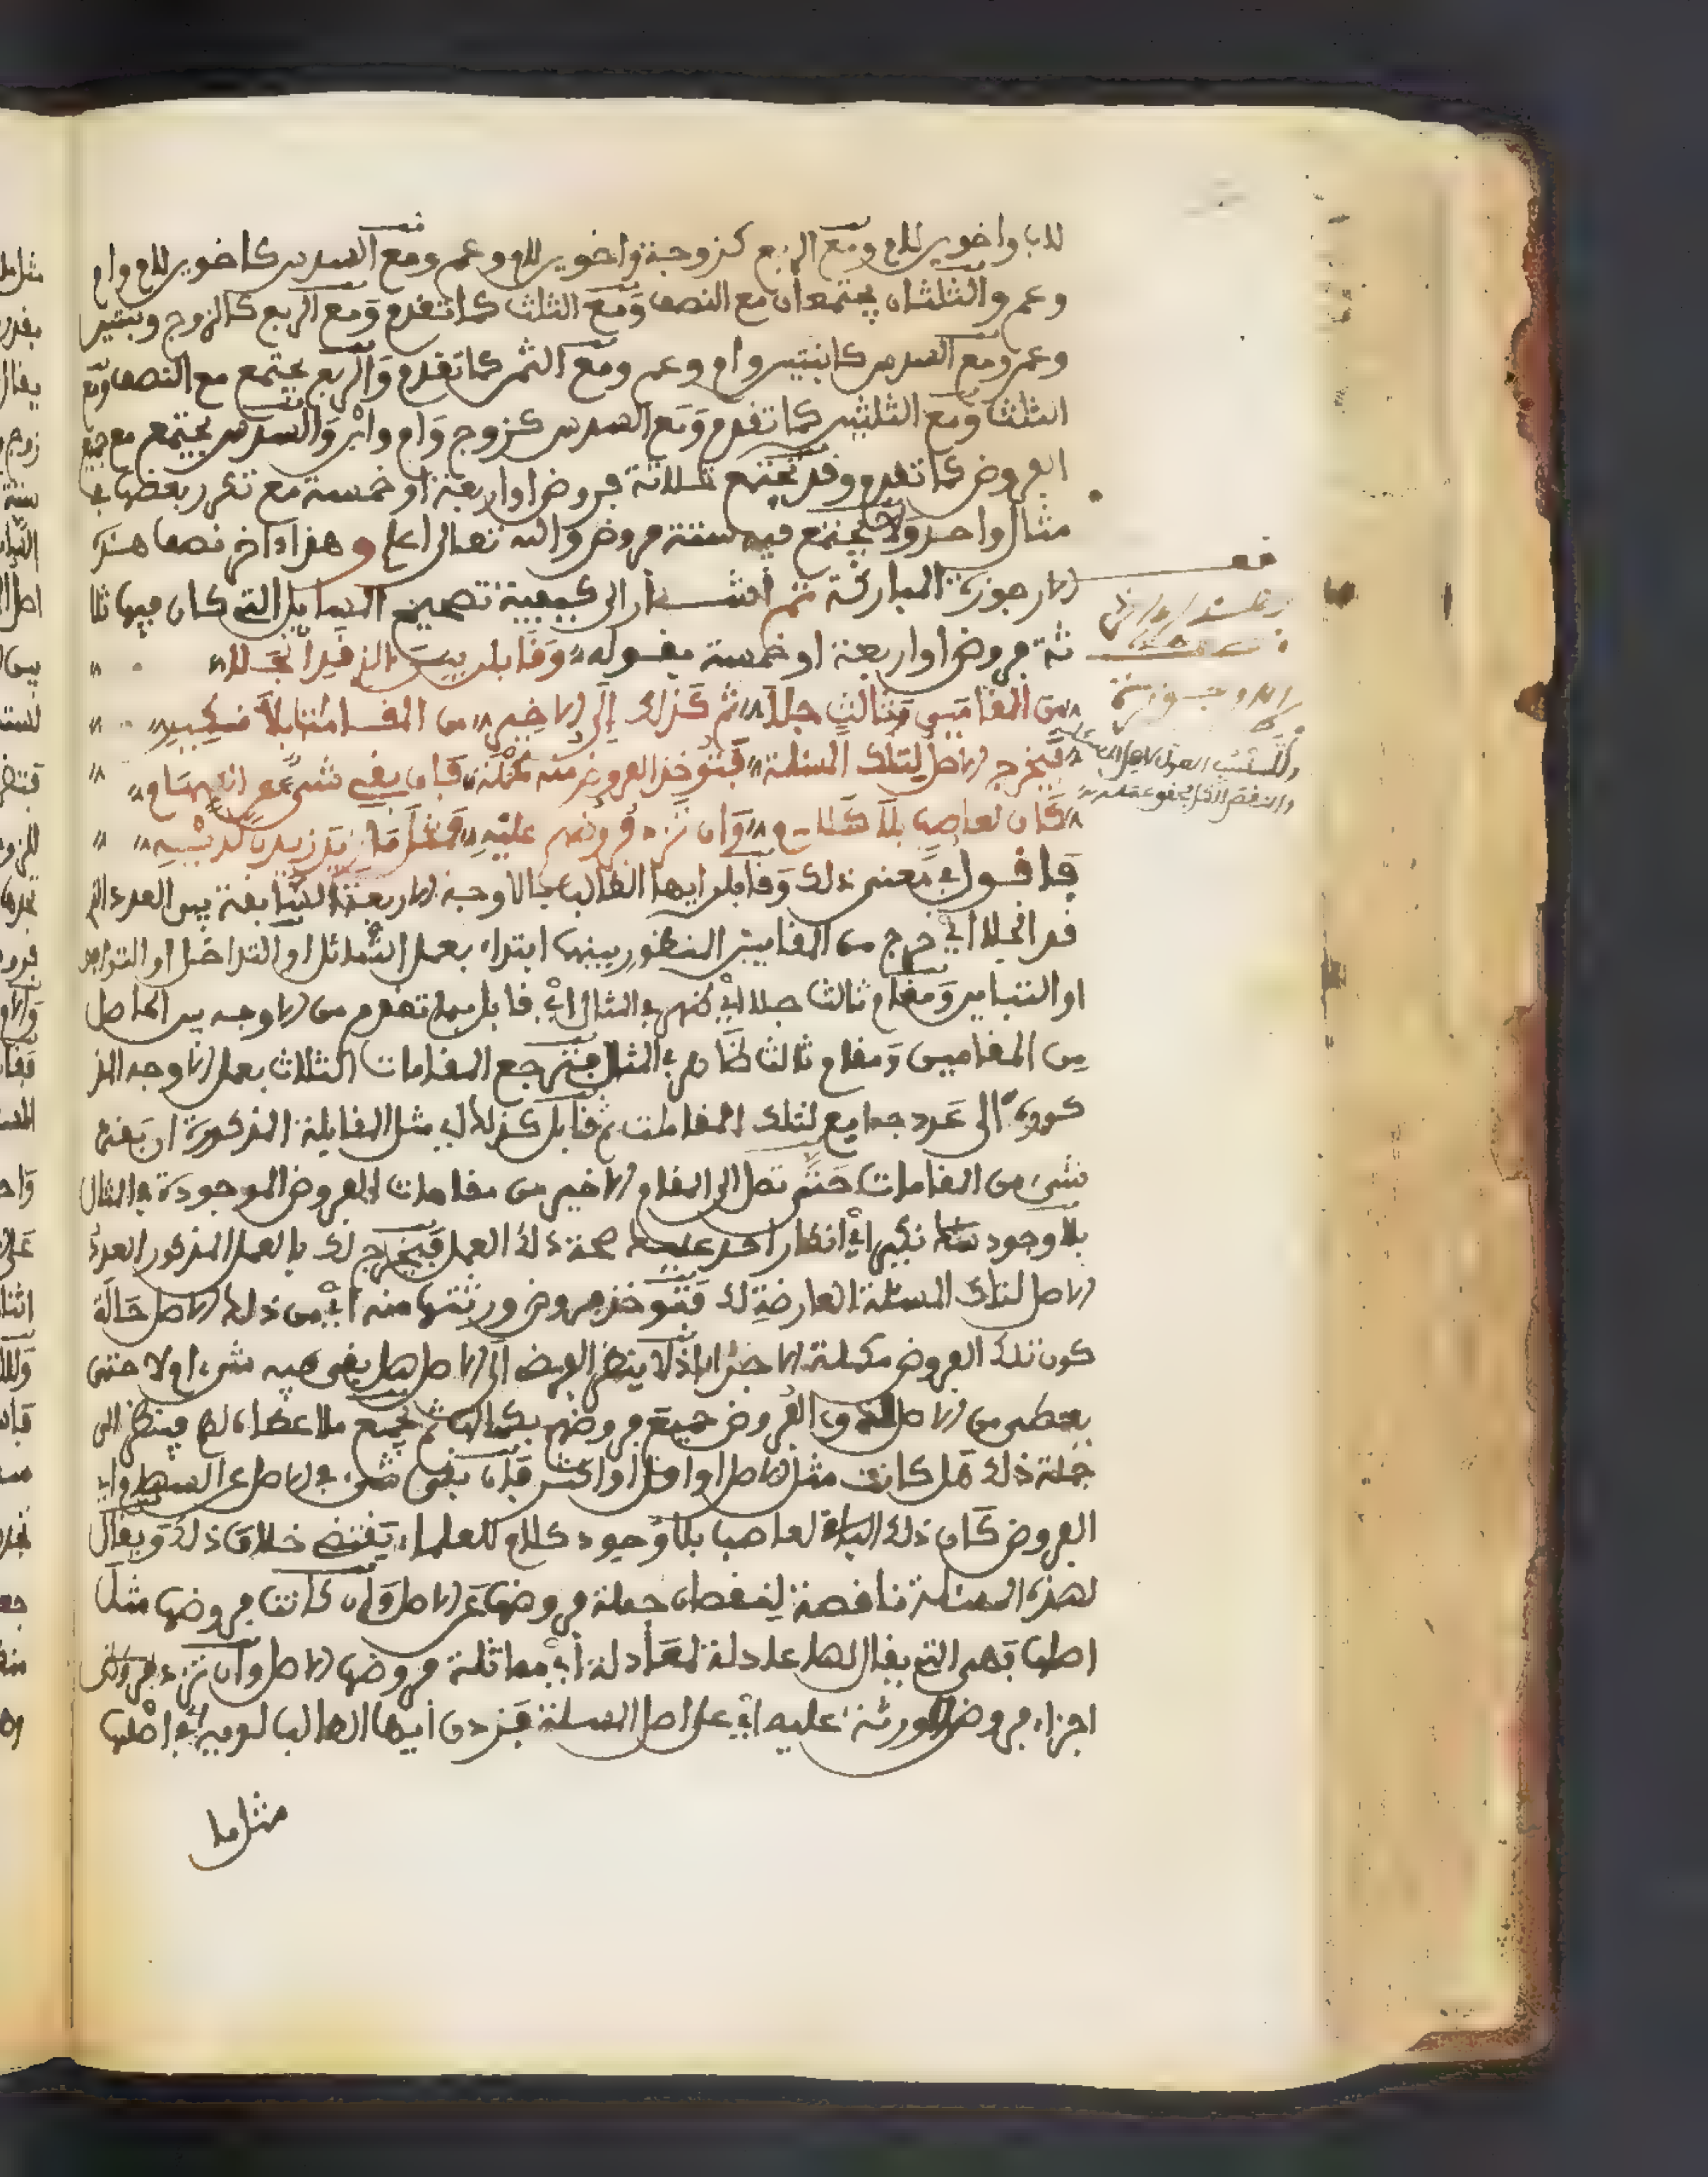 للاب واخوين للام ومع الربع كزوجة واخوين للام وعم ومع السدس كاخوين للام وام
وعم والثلثان يجتمعان مع النصف ومع الثلث كما تقدم ومع الربع كالزوج وبنتين
وعم ومع السدس كابنتين وام وعم ومع الثمن كما تقدم والربع يجتمع مع النصف ومع
الثلث ومع الثلثين كما تقدم ومع السدس كزوج وام وابن والسدس يجتمع مع جميع
الفروض كما تقدم وقد تجتمع ثلاثة فروض او اربعة او خمسة مع تكرر بعضها في
مثال واحد ولا يجتمع فيه ستة فروض والله تعالى اعلم وهذا ءاخر نصف هذه
الارجوزة المباركة ثم اشار الى كيفية تصحيح المسايل التي كان فيها ثلا
ثة فروض او اربعة او خمسة بقوله وقابلن بين الذي قد انجلا
من المقامين وثالث جلا ثم كذلك الى الاخير من المقامات بلا نكير
فيخرج الاصل لتلك المسئلة فتوخذ الفروض منه مكملة فان بقي شيء عن السهام
كان لعاصب بلا كلام وان تزد فروضهم عليه
فاقول في معنى ذلك وقابلن ايها الطالب بالاوجه الاربعة السابقة بين العدد الذي
قد انجلا اي خرج من المقامين المنظور بينهما ابتداء بعمل التماثل او التداخل او التوافق
او التباين ومقام ثالث جلا اي ظهر في المثال اي قابل بما تقدم من الاوجه بين الحاصل
من المقامين ومقام ثالث ظاهر في المثال فترجع المقامات الثلاث بعمل الاوجه المذ
كورة الى عدد جامع لتلك المقامات ثم قابل كذلك اي مثل المقابلة المذكورة ان بقي
شيء من المقامات حتى تصل الى المقام الاخير من مقامات الفروض الموجودة في المثال
بلا وجود نكير اي انكار احد عليك صحة ذلك العمل فيخرج لك بالعمل المذكور العدد
الاصل لتلك المسئلة العارضة لك فتوخذ فروض ورثتها منه اي من ذلك الاصل حالة
كون تلك الفروض مكملة الاجزاء اذ لا ينظر الفرض الى الاصل هل يبقى فيه شيء ام لا حتى
يعطى من الاصل ذوي الفروض جميع فروضهم بكمالها ثم يجمع ما اعطاه لهم فينظر الى
جملة ذلك هل كانت مثل الاصل او اقل او اكثر فان بقي شيء في الاصل عن السهام اي
الفروض كان ذلك الباقي لعاصب بلا وجود كلام للعلماء يقتضي خلاف ذلك ويقال
لهذه المسئلة ناقصة لنقصان جملة فروضها عن الاصل وان كانت فروضها مثل
اصلها فهي التي يقال لها عادلة لمعادلة اي مماثلة فروضها الاصل وان تزد فروض اي
اجزاء فروض الورثة عليه اي على اصل المسئلة فزدن ايها الطالب لديه اي في اصلها
مثل ما
قف
على نصف
الارجوزة